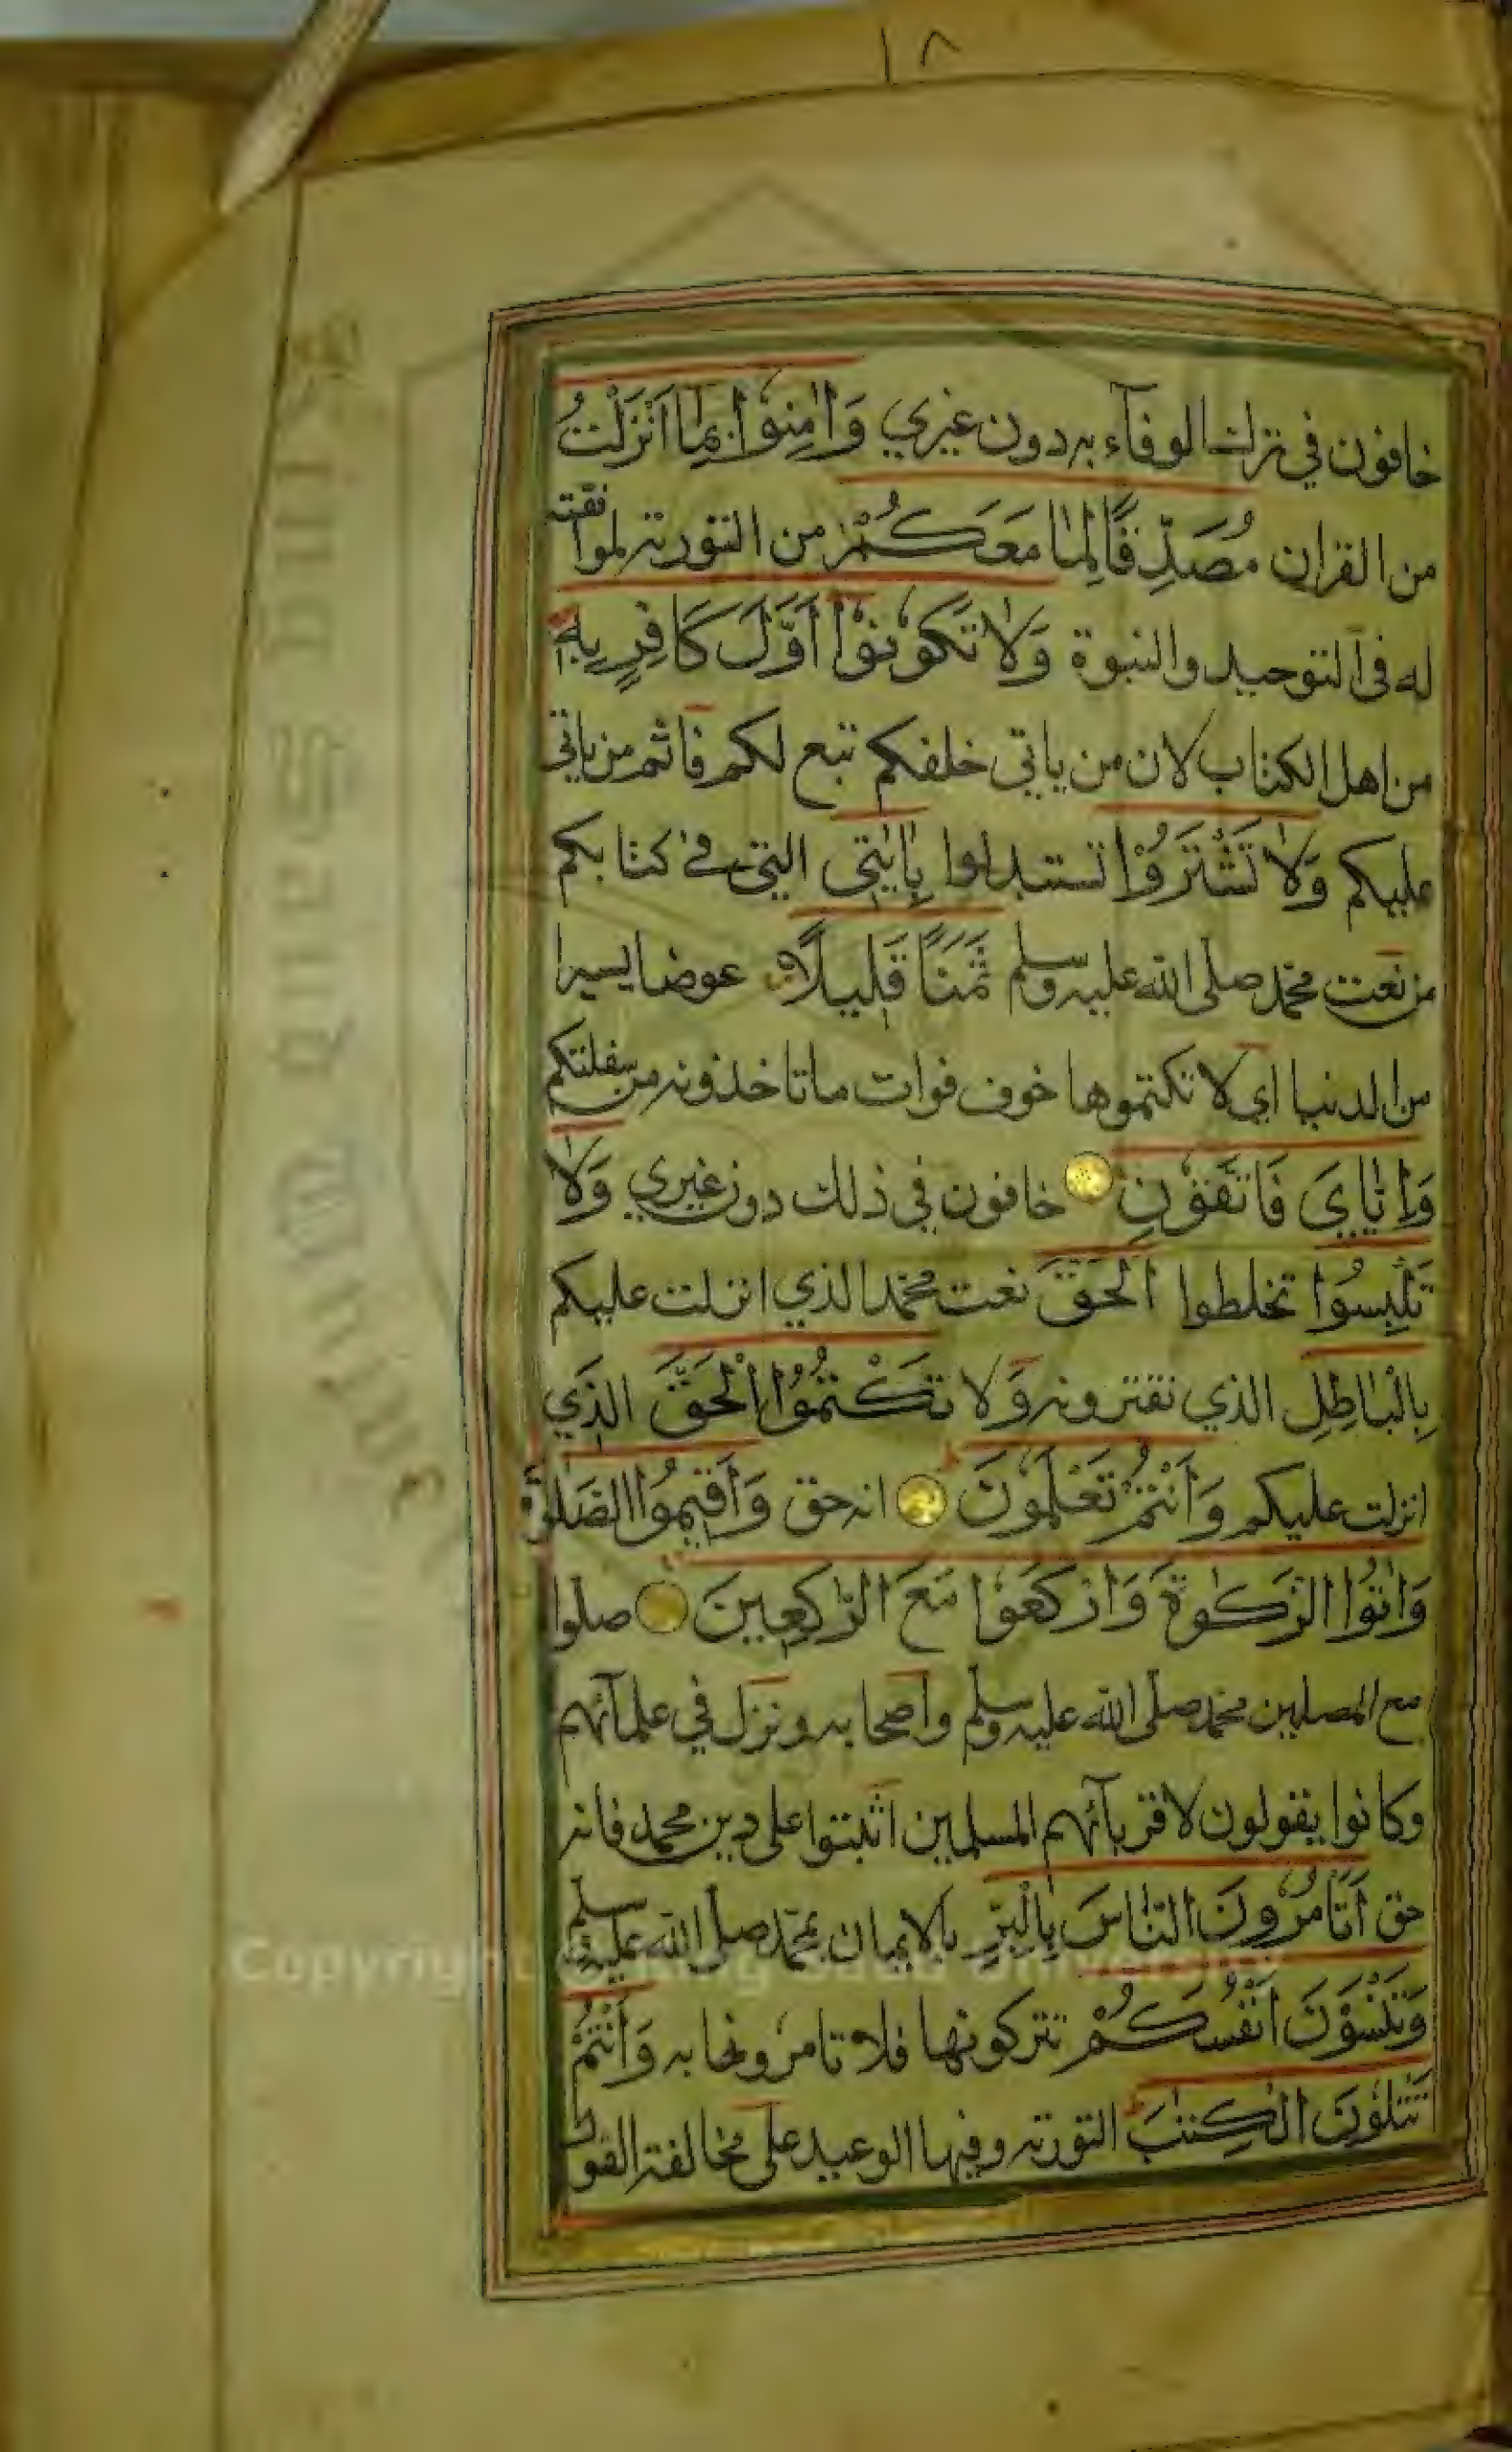 ١٨
خافون في ترك الوفآء به دون غيري وَاٰمِنُوْا بِمَا اَنْزَلْتُ
من القران مُصَدِّقًا لِمَا مَعَكُمْ من التورٰته لموافقته
له فى التوحيد والنبوة وَلَا تَكُوْنُوْا اَوَّلَ كَافِرٍ بِهٖ
من اهل الكتاب لان من ياتي خلفكم تبع لكم فاثم من ياتي
عليكم وَلَا تَشْتَرُوْا تستبدلوا بِاٰيٰتِي التي في كتابكم
من نعت محمّد صلى الله عليه وسلم ثَمَنًا قَلِيلًا عوضا يسيرا
من الدنيا اي لا تكتموها خوف فوات ما تاخذونه من سفلتكم
وَاِيَّايَ فَاتَّقُوْنِ خافون في ذلك دون غيري وَلَا
تَلْبِسُوا تخلطوا الْحَقَّ نعت محمّد الذي انزلت عليكم
بِالْبَاطِلِ الذي تفترونه وَلَا تَكْتُمُوْا الْحَقَّ الذي
انزلت عليكم وَاَنْتُمْ تَعْلَمُوْنَ انه حق وَاَقِيْمُوا الصَّلٰوةَ
وَاٰتُوا الزَّكٰوةَ وَارْكَعُوْا مَعَ الرّٰكِعِينَ صلوا
مع المصلين محمّد صلى الله عليه وسلم واصحابه ونزل في علمآئهم
وكانوا يقولون لاقربآئهم المسلمين اثبتوا على دين محمد فانه
حق اَتَاْمُرُوْنَ النَّاسَ بِالْبِرِّ بالايمان بمحمّد صلى الله عليه وسلم
وَتَنْسَوْنَ اَنْفُسَكُمْ تتركونها فلا تامرونها به وَاَنْتُمْ
تَتْلُوْنَ الْكِتٰبَ التورٰته وفيها الوعيد على مخالفة القول
Copyright © King Saud University